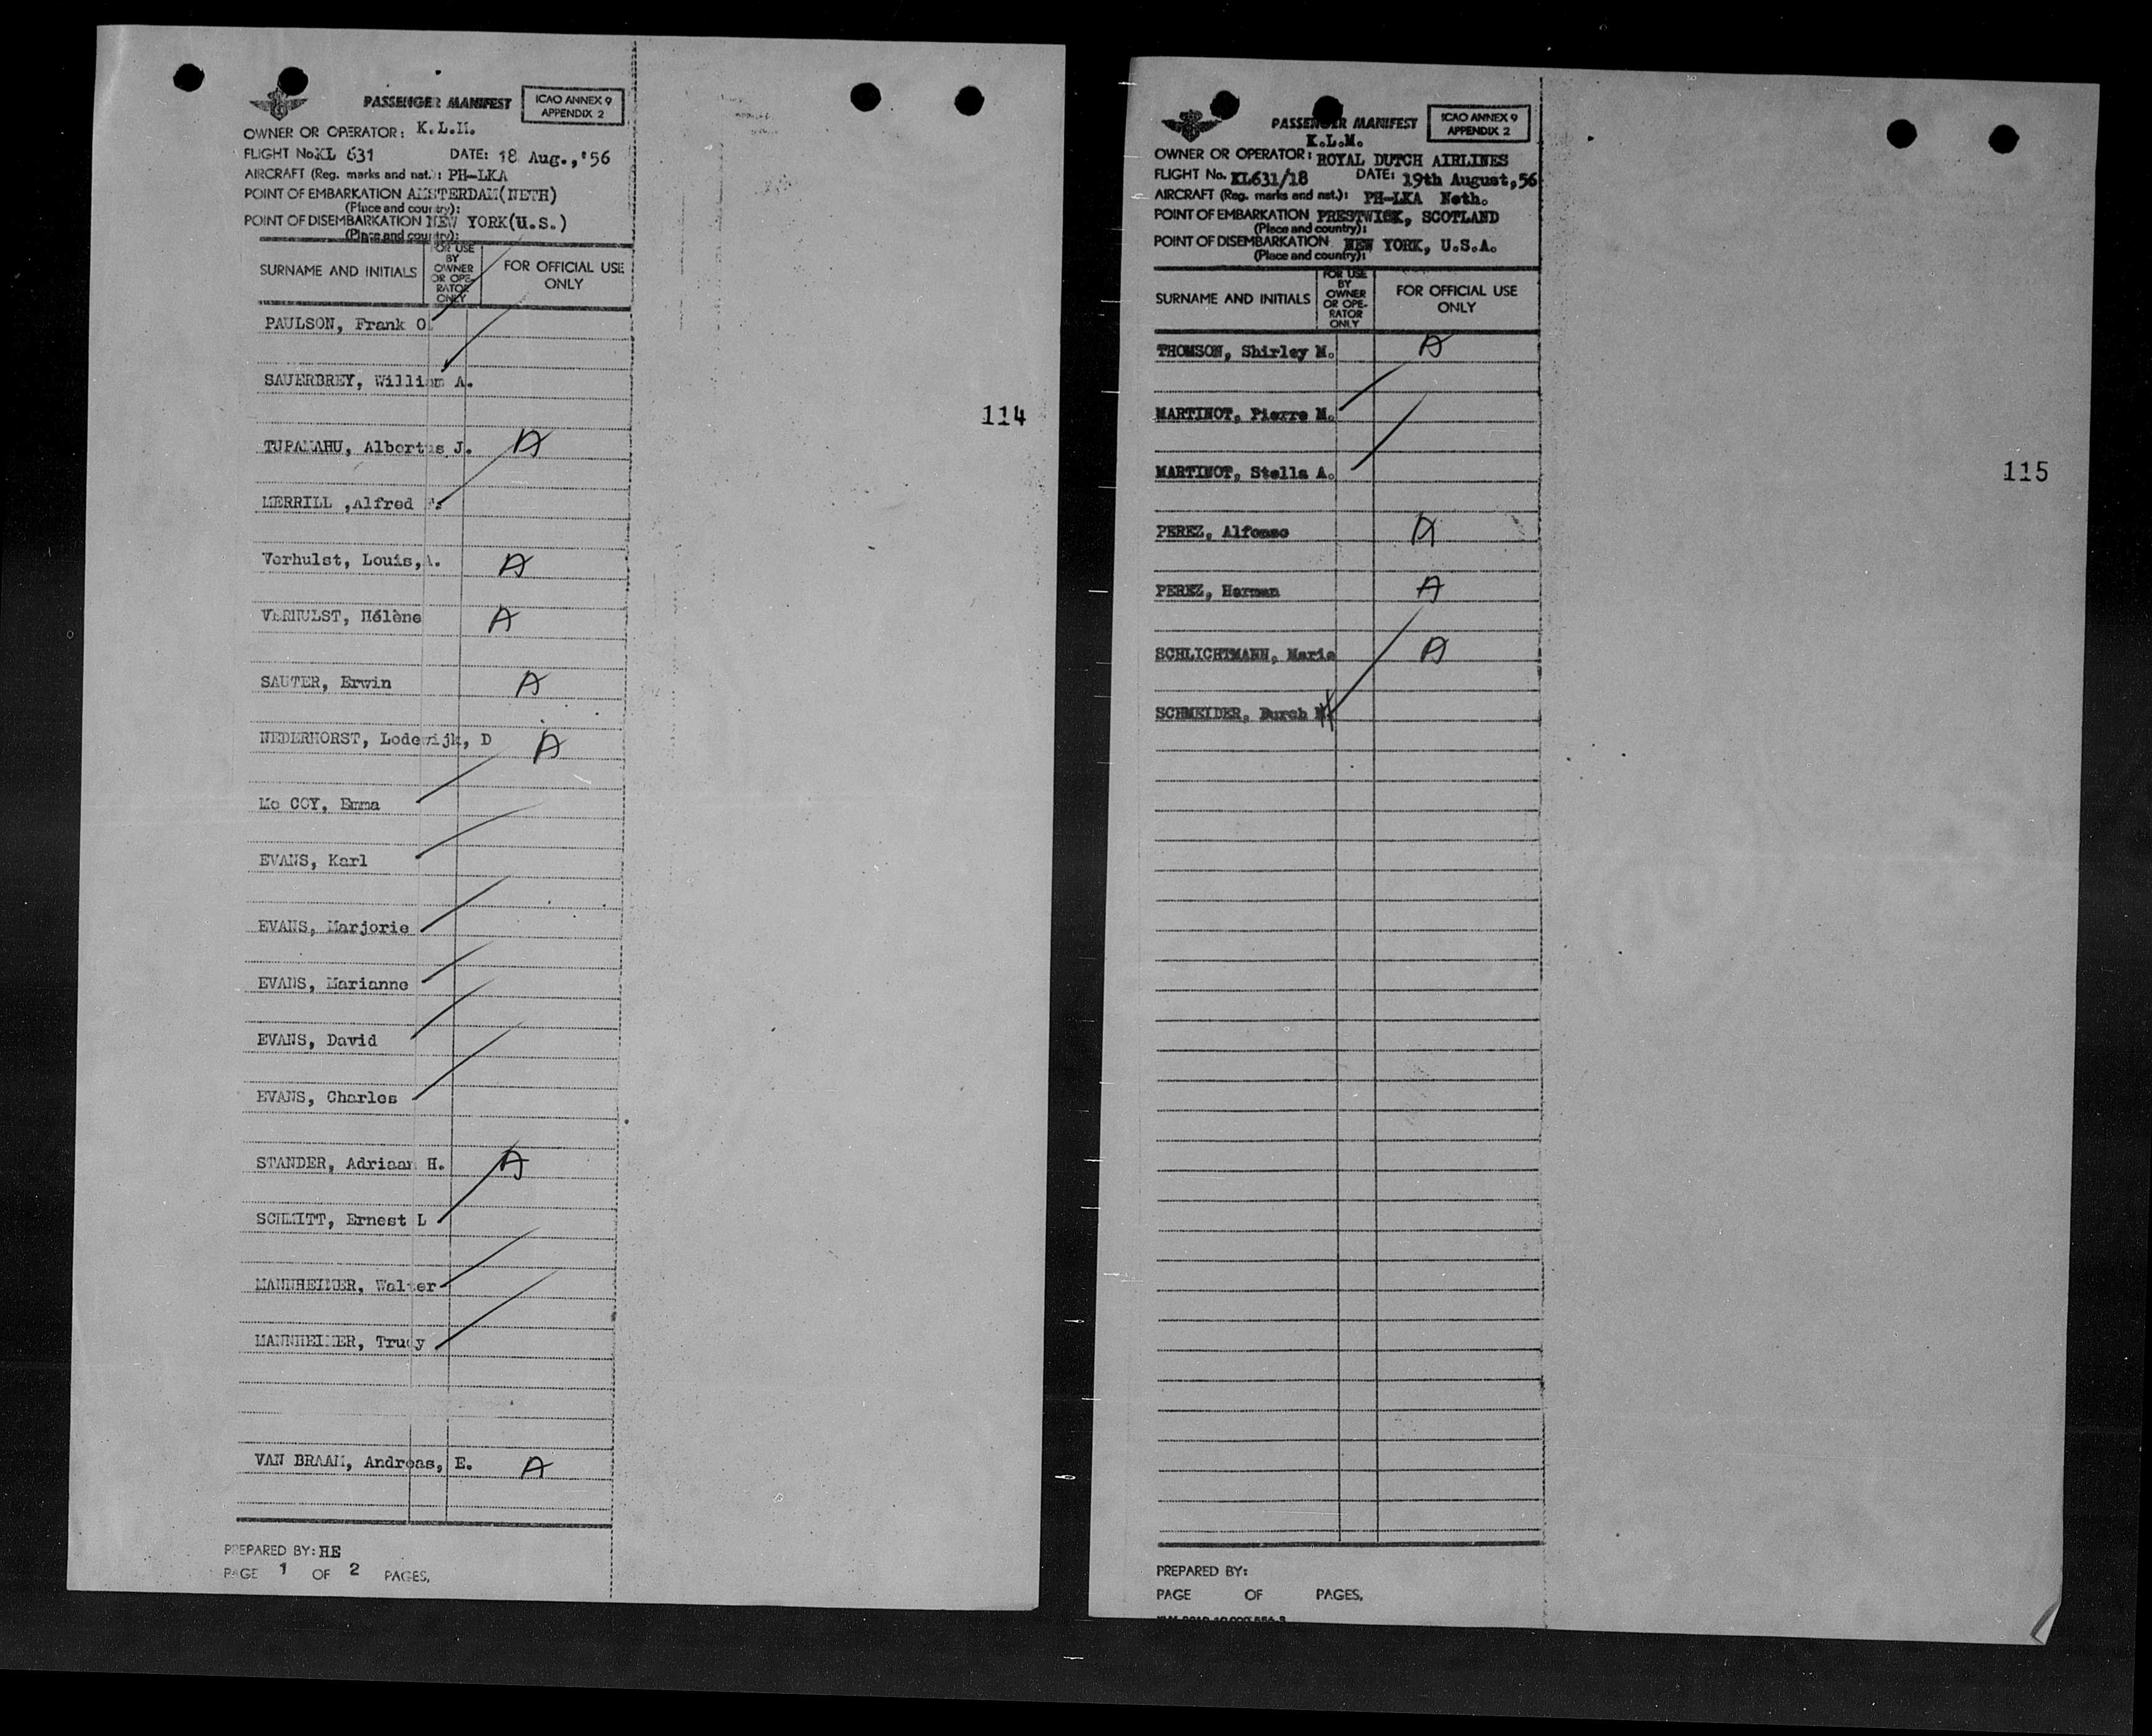 PASSENGER MANIFEST
ICAO ANNEX 9
APPENDIX 2
OWNER OR OPERATOR: K.L.M.
FLIGHT No. KL 631 DATE: 18 Aug.,'56
AIRCRAFT (Reg. marks and nat.): PH-LKA
POINT OF EMBARKATION AMSTERDAM(NETH)
(Place and country):
POINT OF DISEMBARKATION NEW YORK(U.S.)
(Place and country):
SURNAME AND INITIALS
FOR USE
BY
OWNER
OR OPE-
RATOR
ONLY
FOR OFFICIAL USE
ONLY
PAULSON, Frank O.
SAUERBREY, William A.
114
TUPAMAHU, Albertus J. A
MERRILL ,Alfred
Verhulst, Louis,A. A
VERHULST, Hélène A
SAUTER, Erwin A
NEDERHORST, Lodewijk, D A
Mc COY, Emma
EVANS, Karl
EVANS, Marjorie
EVANS, Marianne
EVANS, David
EVANS, Charles
STANDER, Adriaan H. A
SCHMITT, Ernest L
MANNHEIMER, Walter
MANNHEIMER, Trudy
VAN BRAAM, Andreas, E. A
PREPARED BY: HE
PAGE 1 OF 2 PAGES.
PASSENGER MANIFEST
ICAO ANNEX 9
APPENDIX 2
K.L.M.
OWNER OR OPERATOR: ROYAL DUTCH AIRLINES
FLIGHT No. KL631/18 DATE: 19th August,56
AIRCRAFT (Reg. marks and nat.): PH-LKA Neth.
POINT OF EMBARKATION PRESTWICK, SCOTLAND
(Place and country):
POINT OF DISEMBARKATION NEW YORK, U.S.A.
(Place and country):
SURNAME AND INITIALS
FOR USE
BY
OWNER
OR OPE-
RATOR
ONLY
FOR OFFICIAL USE
ONLY
THOMSON, Shirley M. A
MARTINOT, Pierre M.
MARTINOT, Stella A.
115
PEREZ, Alfonso A
PEREZ, Herman A
SCHLICHTMANN, Marie A
SCHNEIDER, Burch
PREPARED BY:
PAGE OF PAGES.